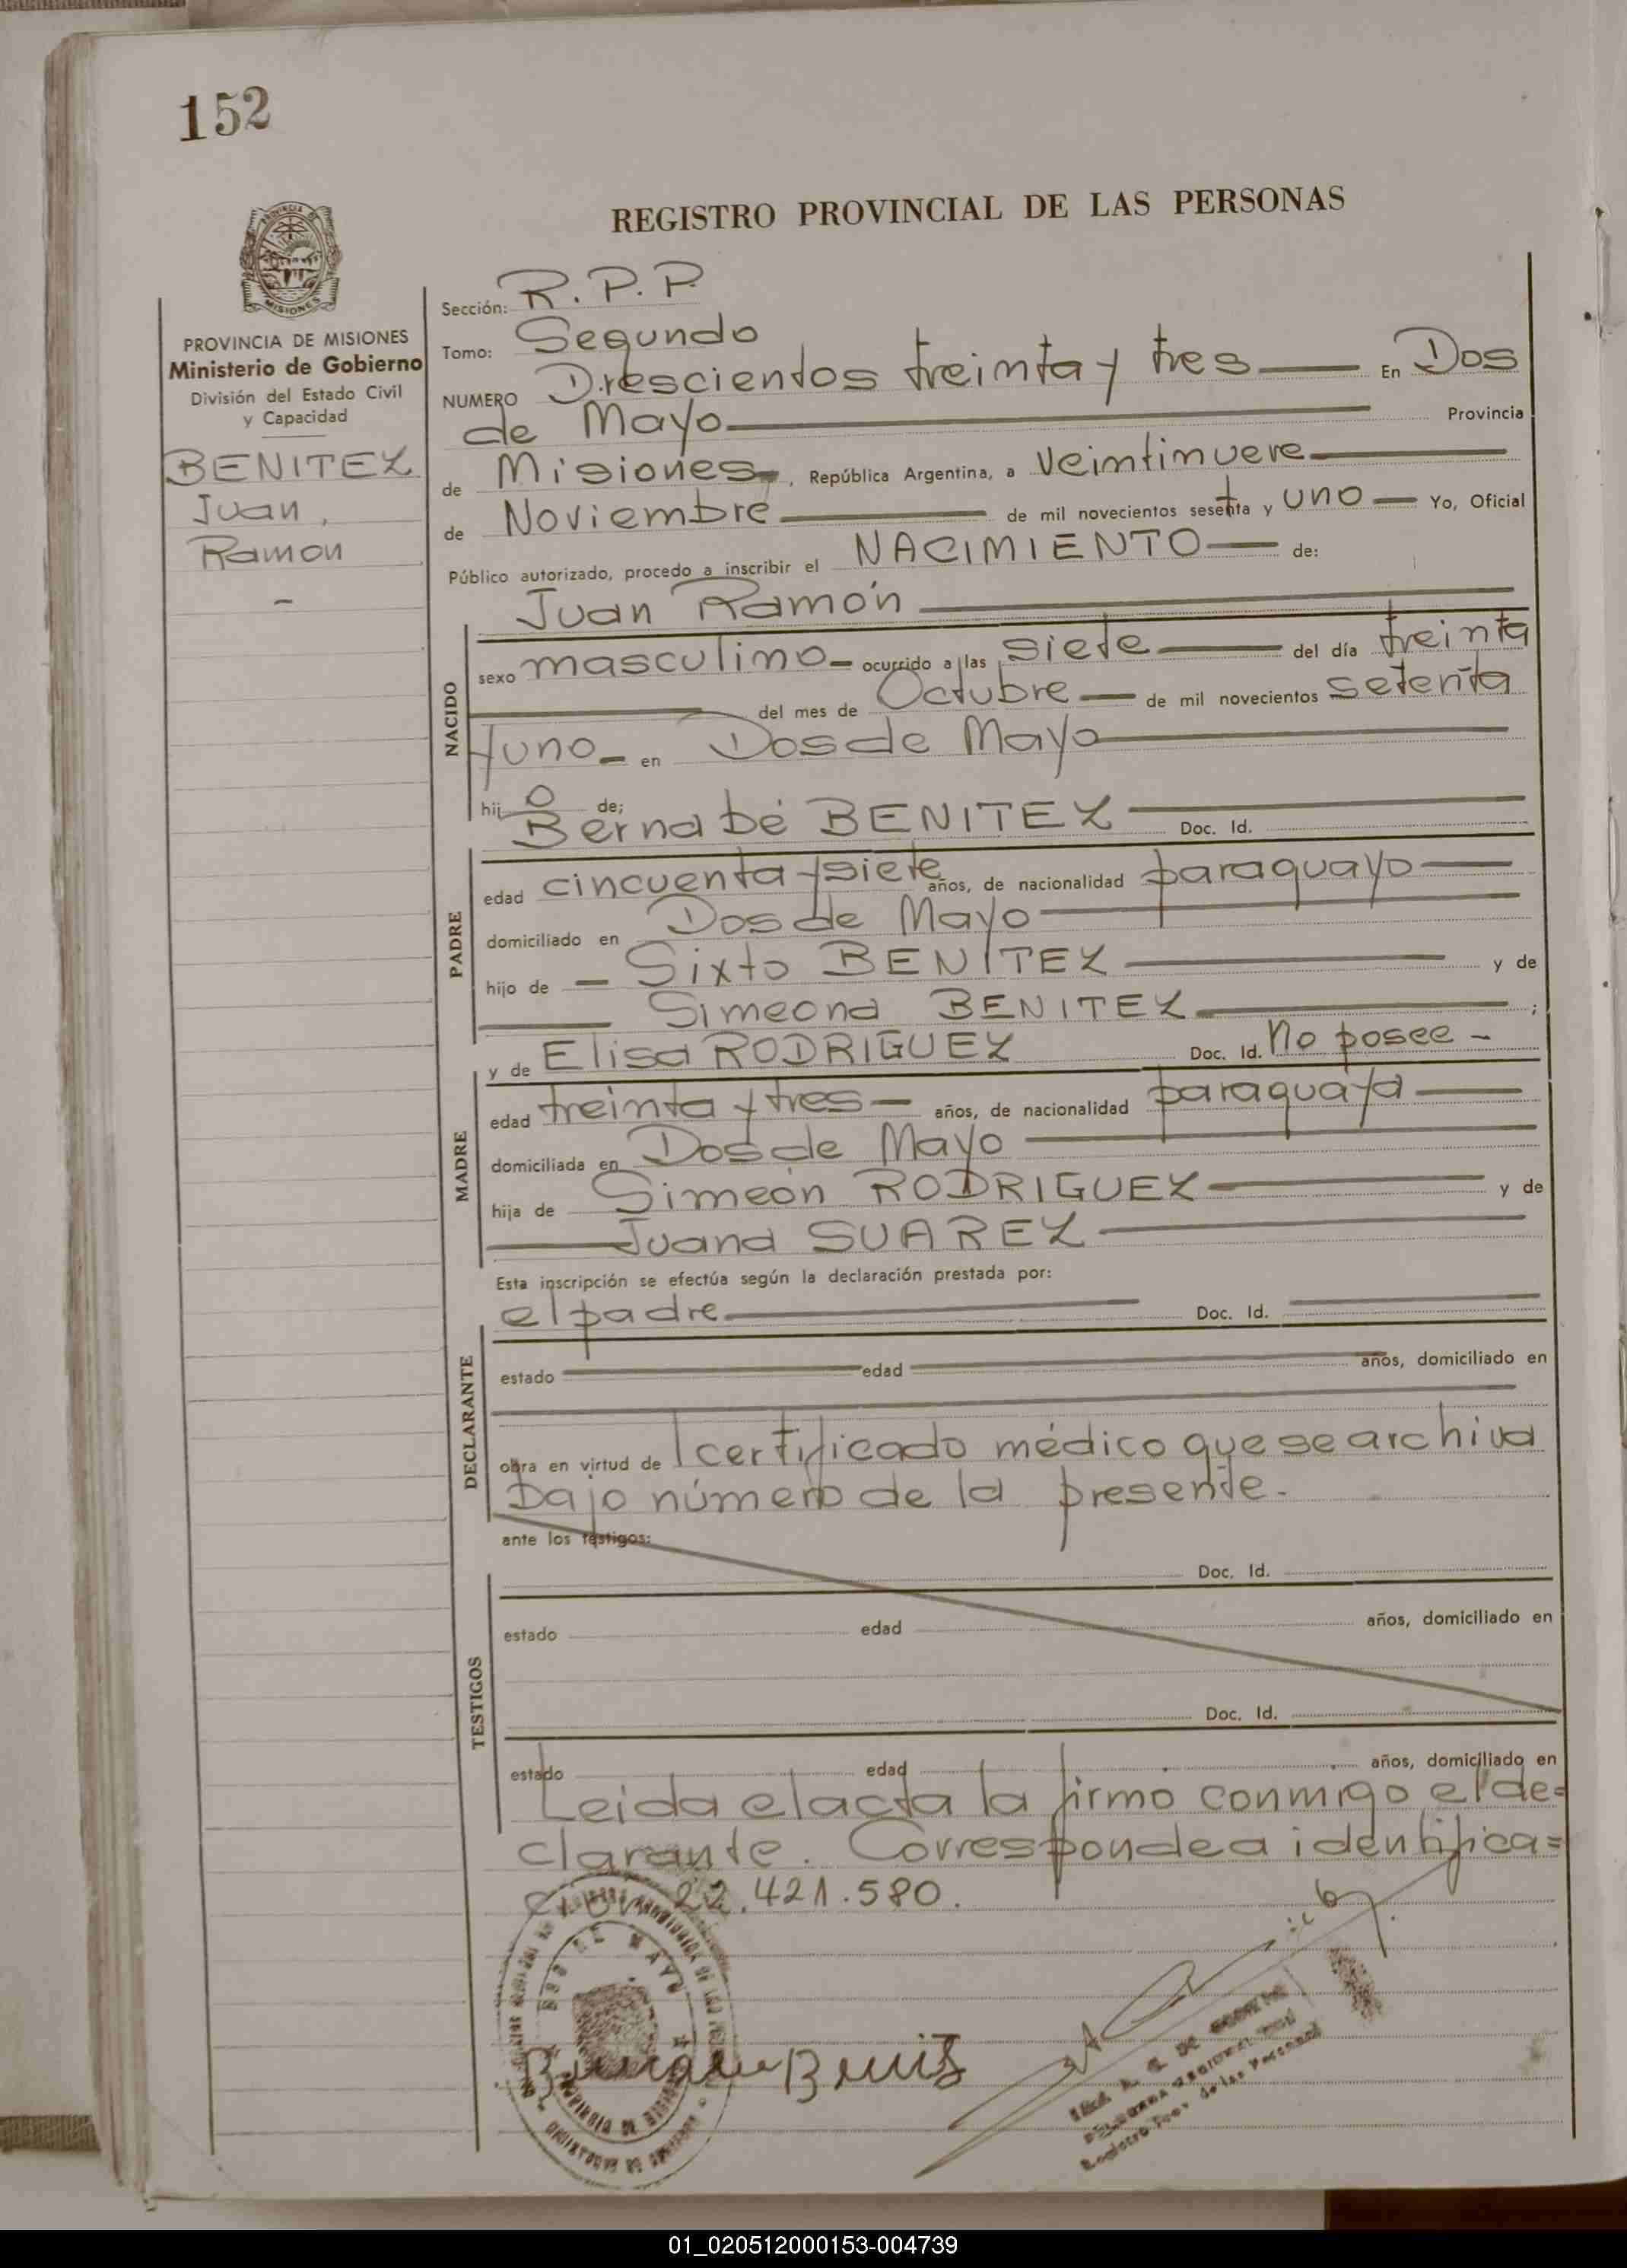 152
REGISTRO PROVINCIAL DE LAS PERSONAS
MISIONES
PROVINCIA DE MISIONES
Ministerio de Gobierno
División del Estado Civil
y Capacidad
BENITEZ
Juan,
Ramon
-
Sección: R.P.P.
Tomo: Segundo
NUMERO Drescientos treinta y tres — En Dos
de Mayo — Provincia
de Misiones, República Argentina, a Veintinueve
de Noviembre — de mil novecientos sesenta y uno — Yo, Oficial
Público autorizado, procedo a inscribir el NACIMIENTO — de:
Juan Ramón
NACIDO
sexo masculino - ocurrido a las siete — del día treinta
— del mes de Octubre — de mil novecientos setenta
y uno - en Dos de Mayo
hijo de:
Bernabé BENITEZ — Doc. Id.
PADRE
edad cincuenta y siete años, de nacionalidad paraguayo
domiciliado en Dos de Mayo
hijo de — Sixto BENITEZ — y de
Simeona BENITEZ — ;
y de Elisa RODRIGUEZ Doc. Id. No posee -
MADRE
edad treinta y tres - años, de nacionalidad paraguaya
domiciliada en Dos de Mayo
hija de Simeón RODRIGUEZ — y de
Juana SUAREZ
Esta inscripción se efectúa según la declaración prestada por:
el padre — Doc. Id.
DECLARANTE
estado — edad — años, domiciliado en
obra en virtud de 1 certificado médico que se archiva
bajo número de la presente.
ante los testigos:
Doc. Id.
TESTIGOS
estado edad años, domiciliado en
Doc. Id.
estado edad años, domiciliado en
Leida el acta la firmó conmigo el de=
clarante. Corresponde a identifica=
ción 22.421.580.
DOS DE MAYO
Registro Prov. de las Personas
01_020512000153-004739